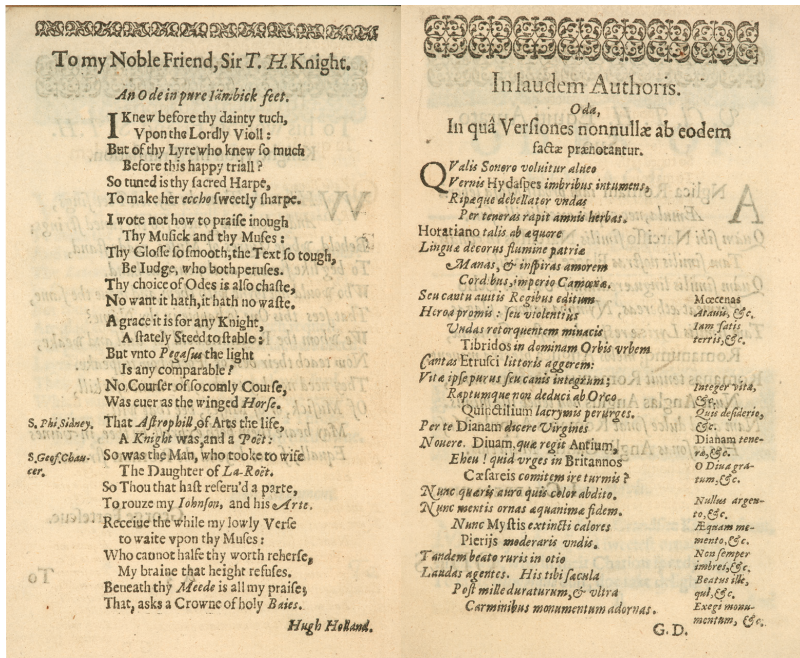 To my Noble Friend, Sir T. H. Knight.
An Ode in pure Iambick feet.
I Knew before thy dainty tuch,
Vpon the Lordly Violl:
But of thy Lyre who knew so much
Before this happy triall?
So tuned is thy sacred Harpe,
To make her eccho sweetly sharpe.
I wote not how to praise inough
Thy Musick and thy Muses:
Thy Glosse so smooth, the Text so tough,
Be Iudge, who both peruses.
Thy choice of Odes is also chaste,
No want it hath, it hath no waste.
A grace it is for any Knight,
A stately Steed to stable:
But vnto Pegasus the light
Is any comparable?
No Courser of so comly Course,
Was euer as the winged Horse.
S. Phi, Sidney.
That Astrophill, of Arts the life,
A Knight was, and a Poët:
S, Geof. Chau-
cer.
So was the Man, who tooke to wife
The Daughter of La-Roët.
So Thou that hast reseru'd a parte,
To rouze my Iohnson, and his Arte.
Receiue the while my lowly Verse
to waite vpon thy Muses:
Who cannot halfe thy worth reherse,
My braine that height refuses.
Beneath thy Meede is all my praise;
That, asks a Crowne of holy Baies.
Hugh Holland.
In laudem Authoris.
Oda,
In quâ Versiones nonnullæ ab eodem
factæ prænotantur.
QValis Sonoro voluitur alueo
Vernis Hydaspes imbribus intumens,
Ripæque debellator vndas
Per teneras rapit amnis herbas.
Horatiano talis ab æquore
Linguæ decorus flumine patriæ
Manas, & inspiras amorem
Cordibus, imperio Camœnæ.
Seu cantu auitis Regibus editum
Mœcenas
Heroa promis: seu violentiùs
Atauis, &c.
Vndas retorquentem minacis
Iam satis
Tibridos in dominam Orbis vrbem
terris, &c.
Cantas Etrusci littoris aggerem:
Vitæ ipse purus seu canis integrum;
Integer vitæ,
Raptumque non deduci ab Orco
&c.
Quinctilium lacrymis perurges.
Quis desiderio,
Per te Dianam dicere Virgines
&c.
Nouere. Diuam, quæ regit Antium,
Dianam tene-
ræ, &c.
Eheu! quid vrges in Britannos
O Diua gra-
Cæsareis comitem ire turmis?
tum, &c.
Nunc quæris auro quis color abdito.
Nullus argen-
Nunc mentis ornas æquanimæ fidem.
to, &c.
Nunc Mystis extincti calores
Æquam me-
Pierijs moderaris vndis.
mento, &c.
Tandem beato ruris in otio
Non semper
imbres, &c.
Laudas agentes. His tibi sæcula
Beatus ille,
Post mille duraturum, & vltra
qui, &c.
Carminibus monumentum adornas.
Exegi monu-
mentum, &c.
G. D.